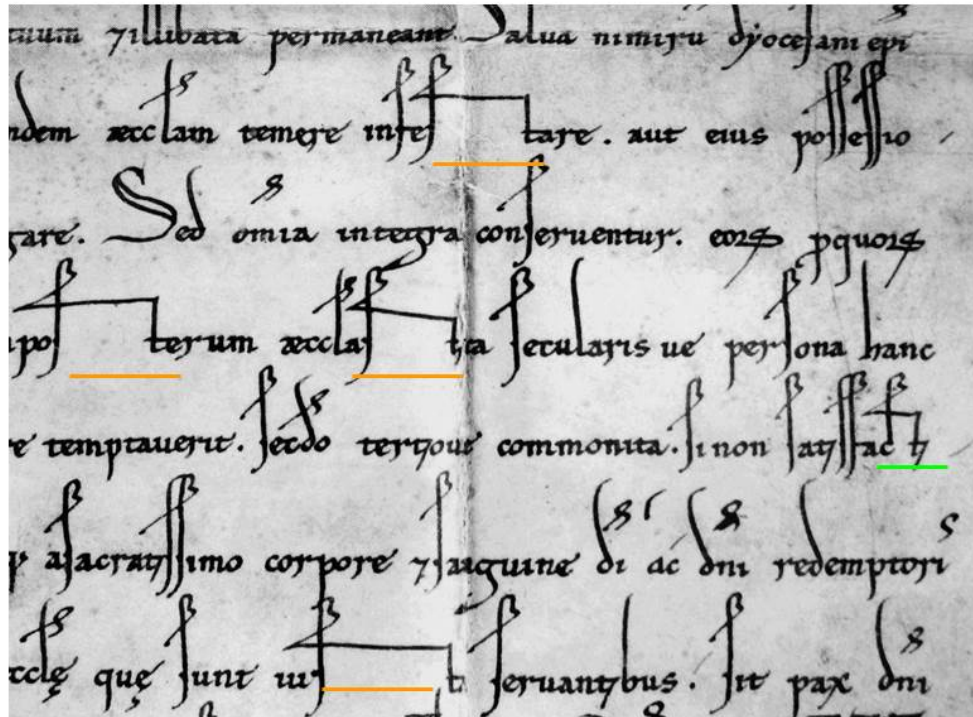 tuum ⁊ illibata permaneant. Salua nimiru dyocesani epi
ndem æcclam temere infestare. aut eius possessio
gare. Sed omia integra conseruentur. eorꝝ pquorꝝ
posterum æcclastica secularis ue persona hanc
re temptauerit. secdo tertioue commonita. si non satisfacti
asacratissimo corpore ⁊ saiguine di ac dni redemptori
cclę quę sunt iust seruantibus. sit pax dni